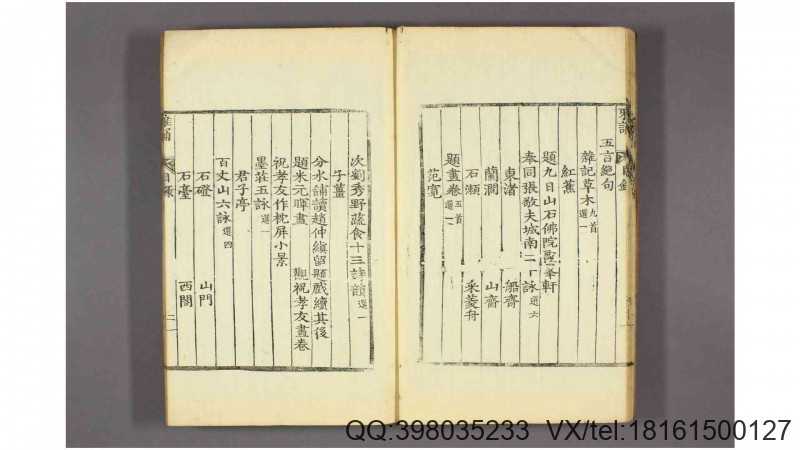 雅誦
五言絕句
雜記草木九首選一
紅蕉
題九日山石佛院亂峯軒
奉同張敬夫城南二十詠選六
東渚 船齋
蘭澗 山齋
石瀬 采菱舟
題畫卷五首選一
范寛
次劉秀野蔬食十三詩韻選一
子薑
分水鋪讀趙仲縝留題戲續其後
題米元暉畫 觀祝孝友畫卷
祝孝友作枕屏小景
墨莊五詠選一
君子亭
百丈山六詠選四
石磴 山門
石臺 西閣
目錄
QQ:398035233 VX/tel:18161500127